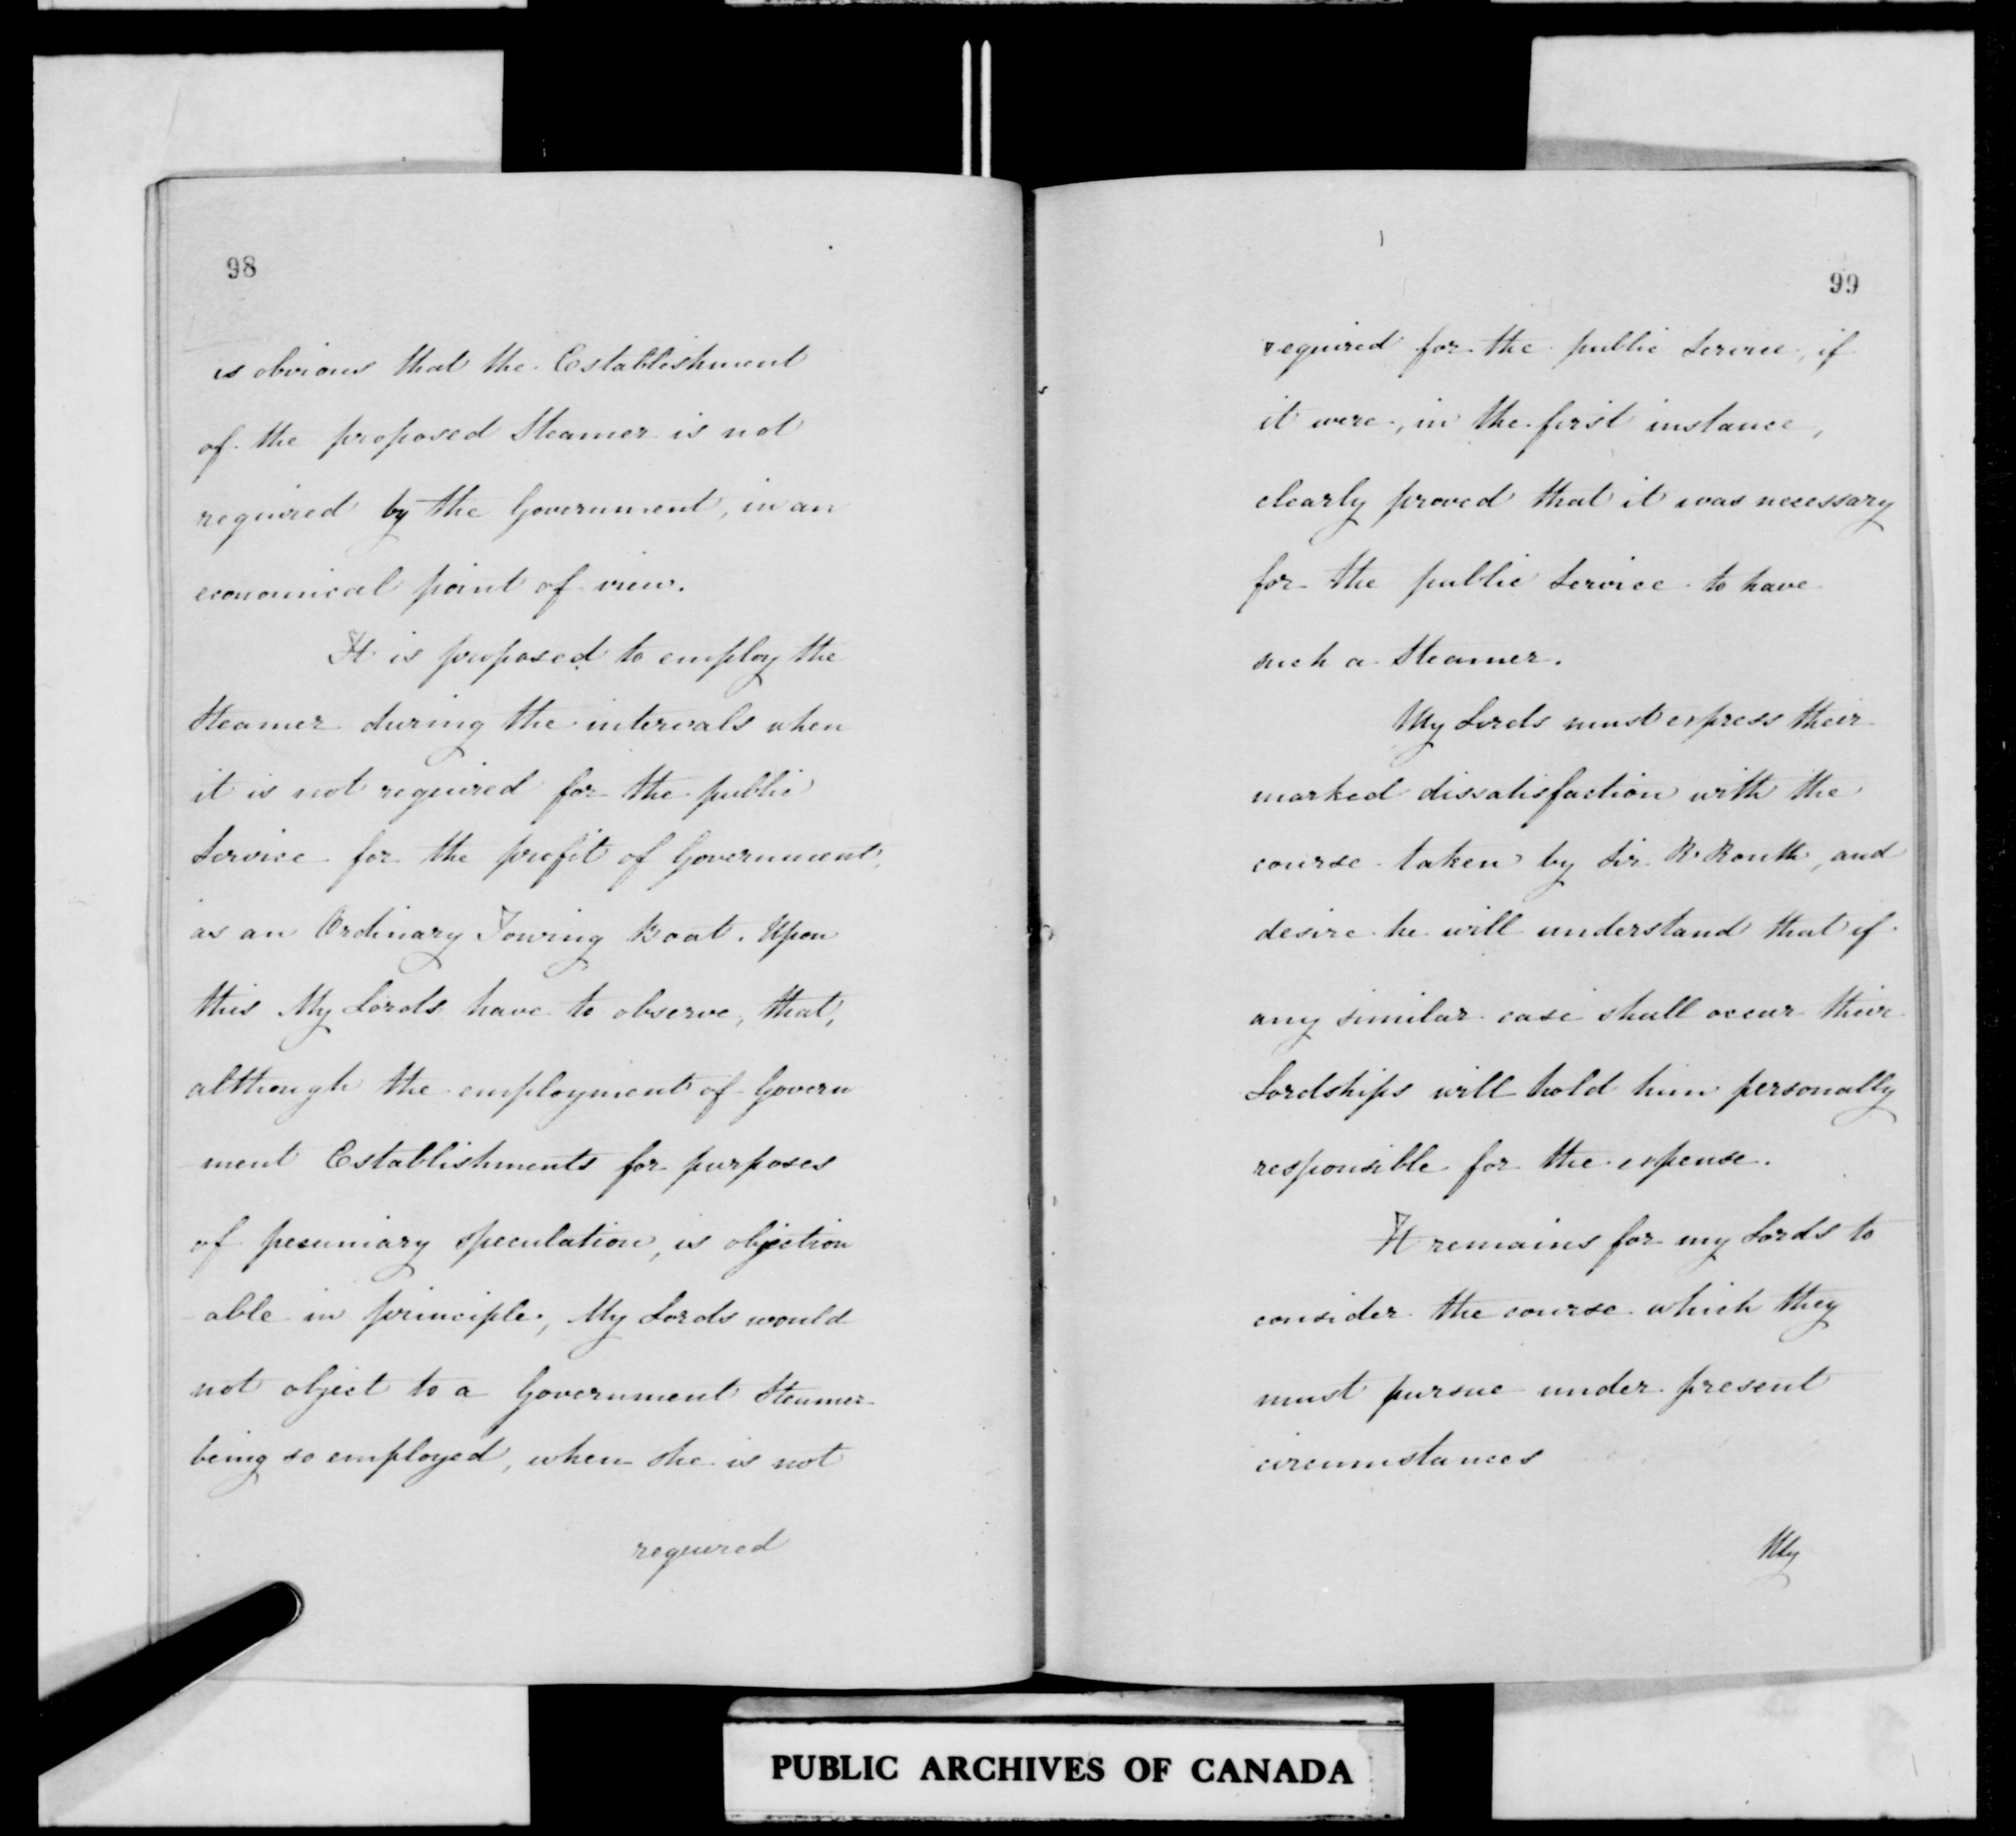 98
is obvious that the Establishment
of the proposed Steamer is not
required by the Government, in an
economical point of view.
It is proposed to employ the
Steamer during the intervals when
it is not required for the public
Service for the profit of Government,
as an Ordinary Towing Boat. Upon
this My Lords have to observe, that,
although the employment of Govern
ment Establishments for purposes
of pecuniary speculation, is objection
able in principle, My Lords would
not object to a Government Steamer
being so employed, when she is not
required
99
required for the public Service, if
it were, in the first instance,
clearly proved that it was necessary
for the public Service to have
such a Steamer.
My Lords must express their
marked dissatisfaction with the
course taken by Sir R. Routh, and
desire he will understand that if
any similar case shall occur their
Lordships will hold him personally
responsible for the expense.
It remains for my Lords to
consider the course which they
must pursue under present
circumstances
My
PUBLIC ARCHIVES OF CANADA